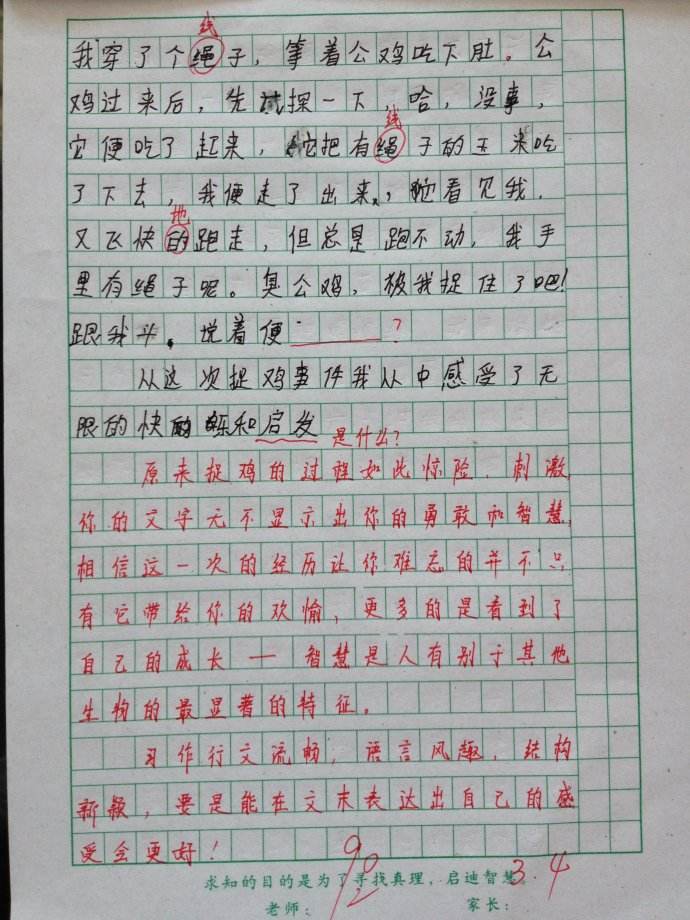 线
我穿了个绳子，等着公鸡吃下肚。公
鸡过来后，先试探一下，哈，没事，
线
它便吃了起来，它把有绳子的玉米吃
了下去，我便走了出来，她看见我，
地
又飞快的跑走，但总是跑不动，我手
里有绳子呢。臭公鸡，被我捉住了吧！
跟我斗。说着便 ？
从这次捉鸡事件我从中感受了无
限的快乐和启发 是什么？
原来捉鸡的过程如此惊险、刺激，
你的文字无不显示出你的勇敢和智慧，
相信这一次的经历让你难忘的并不只
有它带给你的欢愉，更多的是看到了
自己的成长——智慧是人有别于其他
生物的最显著的特征。
习作行文流畅，语言风趣，结构
新颖，要是能在文末表达出自己的感
受会更好！
92
3.4
求知的目的是为了寻找真理，启迪智慧。
老师： 家长：